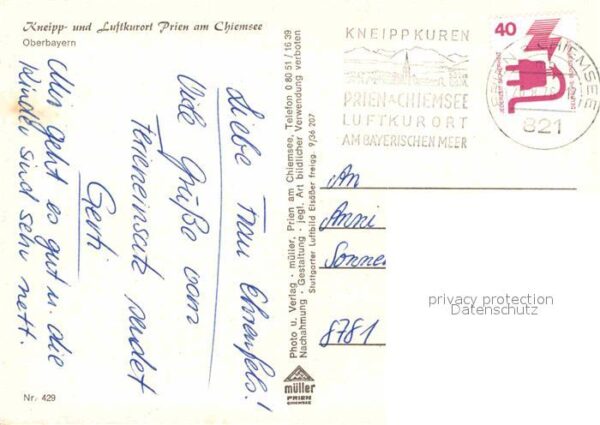 Kneipp- und Luftkurort Prien am Chiemsee
Oberbayern
Liebe Frau Ehrenfels!
Viele Grüße vom
Ferieneinsatz sendet
Gerti
Mir geht es gut u. die
Kinder sind sehr nett.
Nr. 429
Photo u. Verlag · müller, Prien am Chiemsee, Telefon 0 80 51 / 16 39
Nachahmung · Gestaltung · jegl. Art bildlicher Verwendung verboten
Stuttgarter Luftbild Elsäßer freigg. 9/36 207
müller
PRIEN
CHIEMSEE
KNEIPPKUREN
PRIEN A. CHIEMSEE
LUFTKURORT
AM BAYERISCHEN MEER
CHIEMSEE
821
40
An
Anni
Sonne
8781
privacy protection
Datenschutz